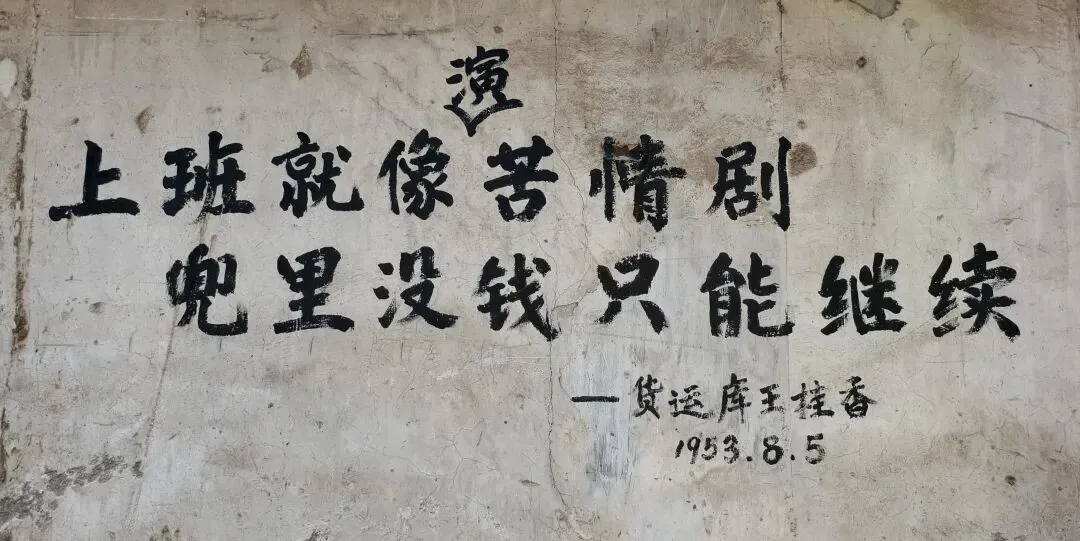 上班就像演苦情剧
兜里没钱只能继续
—货运库王桂香
1953.8.5